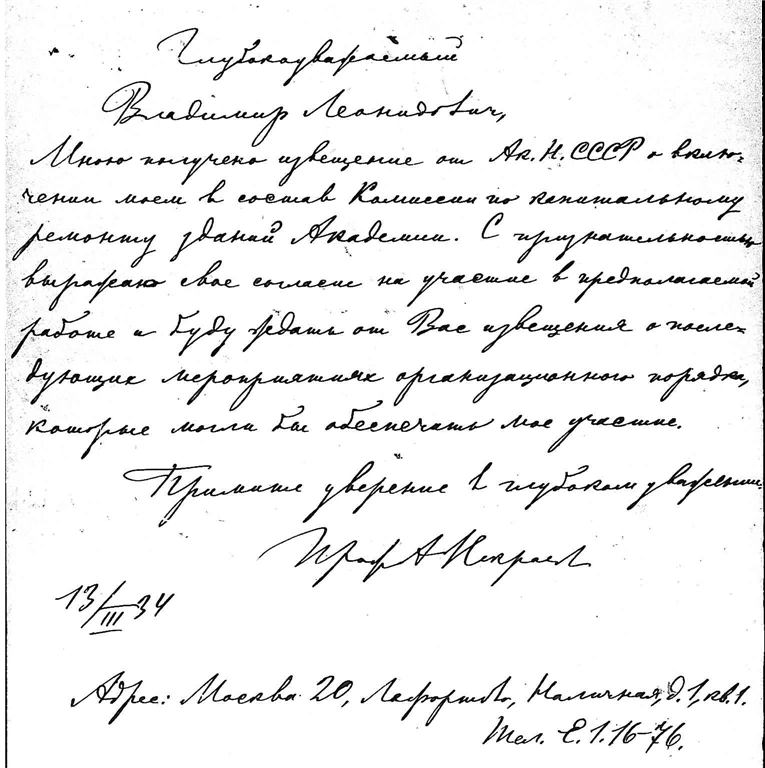 Глубокоуважаемый
Владимир Леонидович,
Мною получено извещение от Ак. Н. СССР о вклю-
чении моем в состав Комиссии по капитальному
ремонту зданий Академии. С признательностью
выражаю свое согласие на участие в предполагаемой
работе и буду ждать от Вас извещения о после-
дующих мероприятиях организационного порядка,
которые могли бы обеспечить мое участие.
Примите уверение в глубоком уважении.
Проф А Некрасов
13/III 34
Адрес: Москва 20, Лафортово, Наличная, д. 1, кв. 1.
Тел. Е. 1. 16-76.